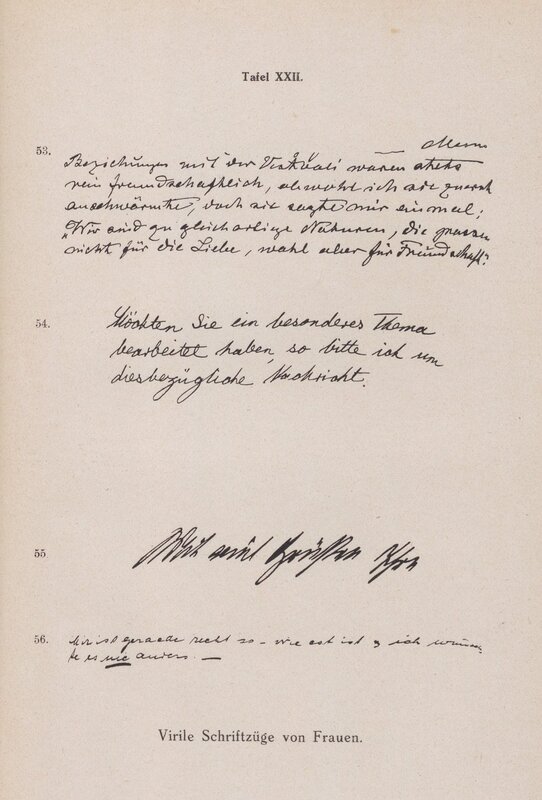 Tafel XXII.
53. — Meine
Beziehungen mit der Vestvali waren stets
rein freundschaftlich, obwohl ich sie zuerst
anschwärmte, doch sie sagte mir einmal:
„Wir sind zu gleichartige Naturen, die passen
nicht für die Liebe, wohl aber für Freundschaft."
54. Möchten Sie ein besonderes Thema
bearbeitet haben, so bitte ich um
diesbezügliche Nachricht.
55 Mit viel Grüßen Ihre
56. Mir ist gerade recht so – wie es ist & ich
es nie anders. —
Virile Schriftzüge von Frauen.